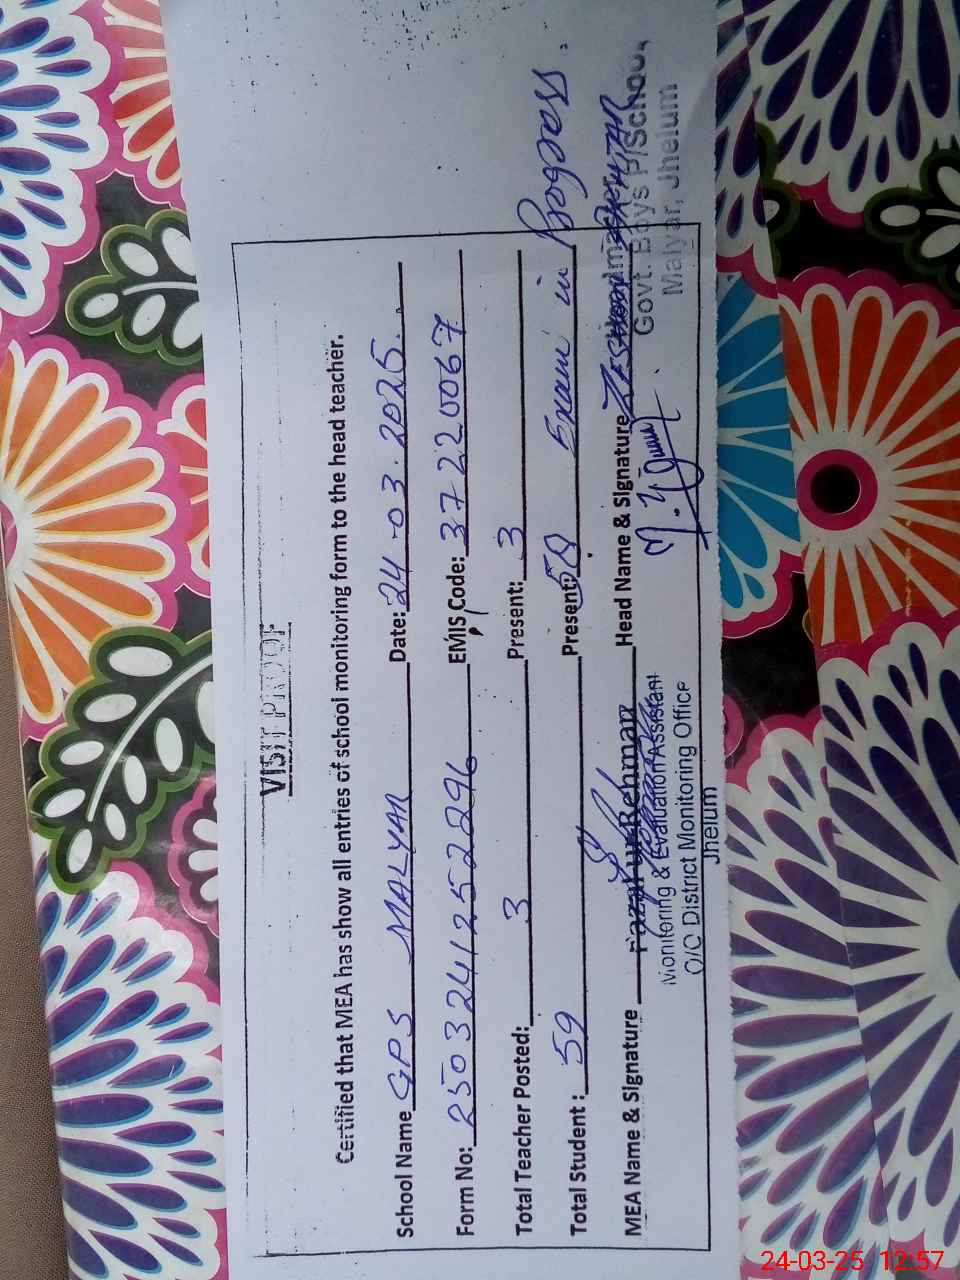 VISIT PROOF
Certified that MEA has show all entries of school monitoring form to the head teacher.
School Name GPS MALYAR Date: 24-03-2025.
Form No: 2503241252296 EMIS Code: 37220067
Total Teacher Posted: 3 Present: 3
Total Student : 59 Present: 59 Exam in Progress.
MEA Name & Signature Fazal ur Rehman Head Name & Signature
Monitoring & Evaluation Assistant
O/O District Monitoring Office
Jhelum
Govt. Boys P/School
Malyar, Jhelum
24-03-25 12:57